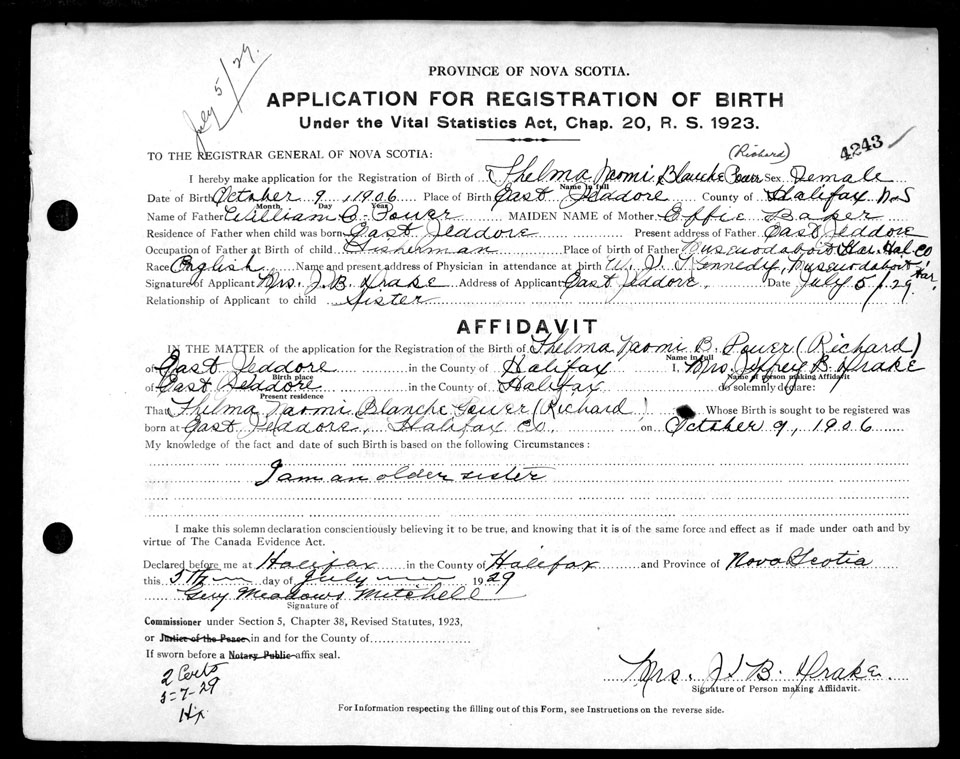 July 5/29.
PROVINCE OF NOVA SCOTIA.
APPLICATION FOR REGISTRATION OF BIRTH
Under the Vital Statistics Act, Chap. 20, R. S. 1923.
4243
TO THE REGISTRAR GENERAL OF NOVA SCOTIA:
(Richard)
I hereby make application for the Registration of Birth of Thelma Naomi Blanche Power Sex Female
Name in full
Date of Birth October 9, 1906 Place of Birth East Jeddore County of Halifax N.S
Month Day Year
Name of Father William C. Power MAIDEN NAME of Mother Effie Baker
Residence of Father when child was born East Jeddore Present address of Father East Jeddore
Occupation of Father at Birth of child Fisherman Place of birth of Father Musquodoboit Har. Hal. Co
Race English Name and present address of Physician in attendance at birth W. J. Kennedy, Musquodoboit Har.
Signature of Applicant Mrs. J. B. Drake Address of Applicant East Jeddore. Date July 5/29.
Relationship of Applicant to child Sister
AFFIDAVIT
IN THE MATTER of the application for the Registration of the Birth of Thelma Naomi B. Power (Richard)
Name in full
of East Jeddore in the County of Halifax I, Mrs. Jeffrey B. Drake
Birth place Name of person making Affidavit
of East Jeddore in the County of Halifax do solemnly declare:
Present residence
That Thelma Naomi Blanche Power (Richard) Whose Birth is sought to be registered was
born at East Jeddore, Halifax Co. on October 9, 1906
My knowledge of the fact and date of such Birth is based on the following Circumstances:
I am an older sister
I make this solemn declaration conscientiously believing it to be true, and knowing that it is of the same force and effect as if made under oath and by
virtue of The Canada Evidence Act.
Declared before me at Halifax in the County of Halifax and Province of Nova Scotia
this 5th day of July 1929
Guy Meadows Mitchell
Signature of
Commissioner under Section 5, Chapter 38, Revised Statutes, 1923,
or Justice of the Peace in and for the County of
If sworn before a Notary Public affix seal.
2 Certs
5-7-29
Hx
Mrs. J. B. Drake.
Signature of Person making Affidavit.
For Information respecting the filling out of this Form, see Instructions on the reverse side.